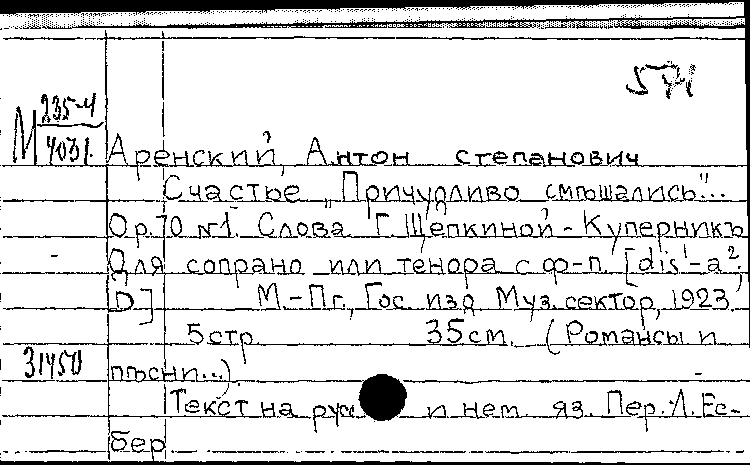 571
М 235-4
4031.
Аренский, Антон степанович
Счастье „Причудливо смѣшались"...
Op. 70 №1. Слова Г. Щепкиной-Куперникъ
Для сопрано или тенора с ф-п. [dis¹-a²;
D] М.-Пг., Гос. изд. Муз. сектор, 1923,
5 стр. 35 cm. (Романсы и
31450
пѣсни...).
Текст на рус и нем. яз. Пер. Л. Ес-
бер